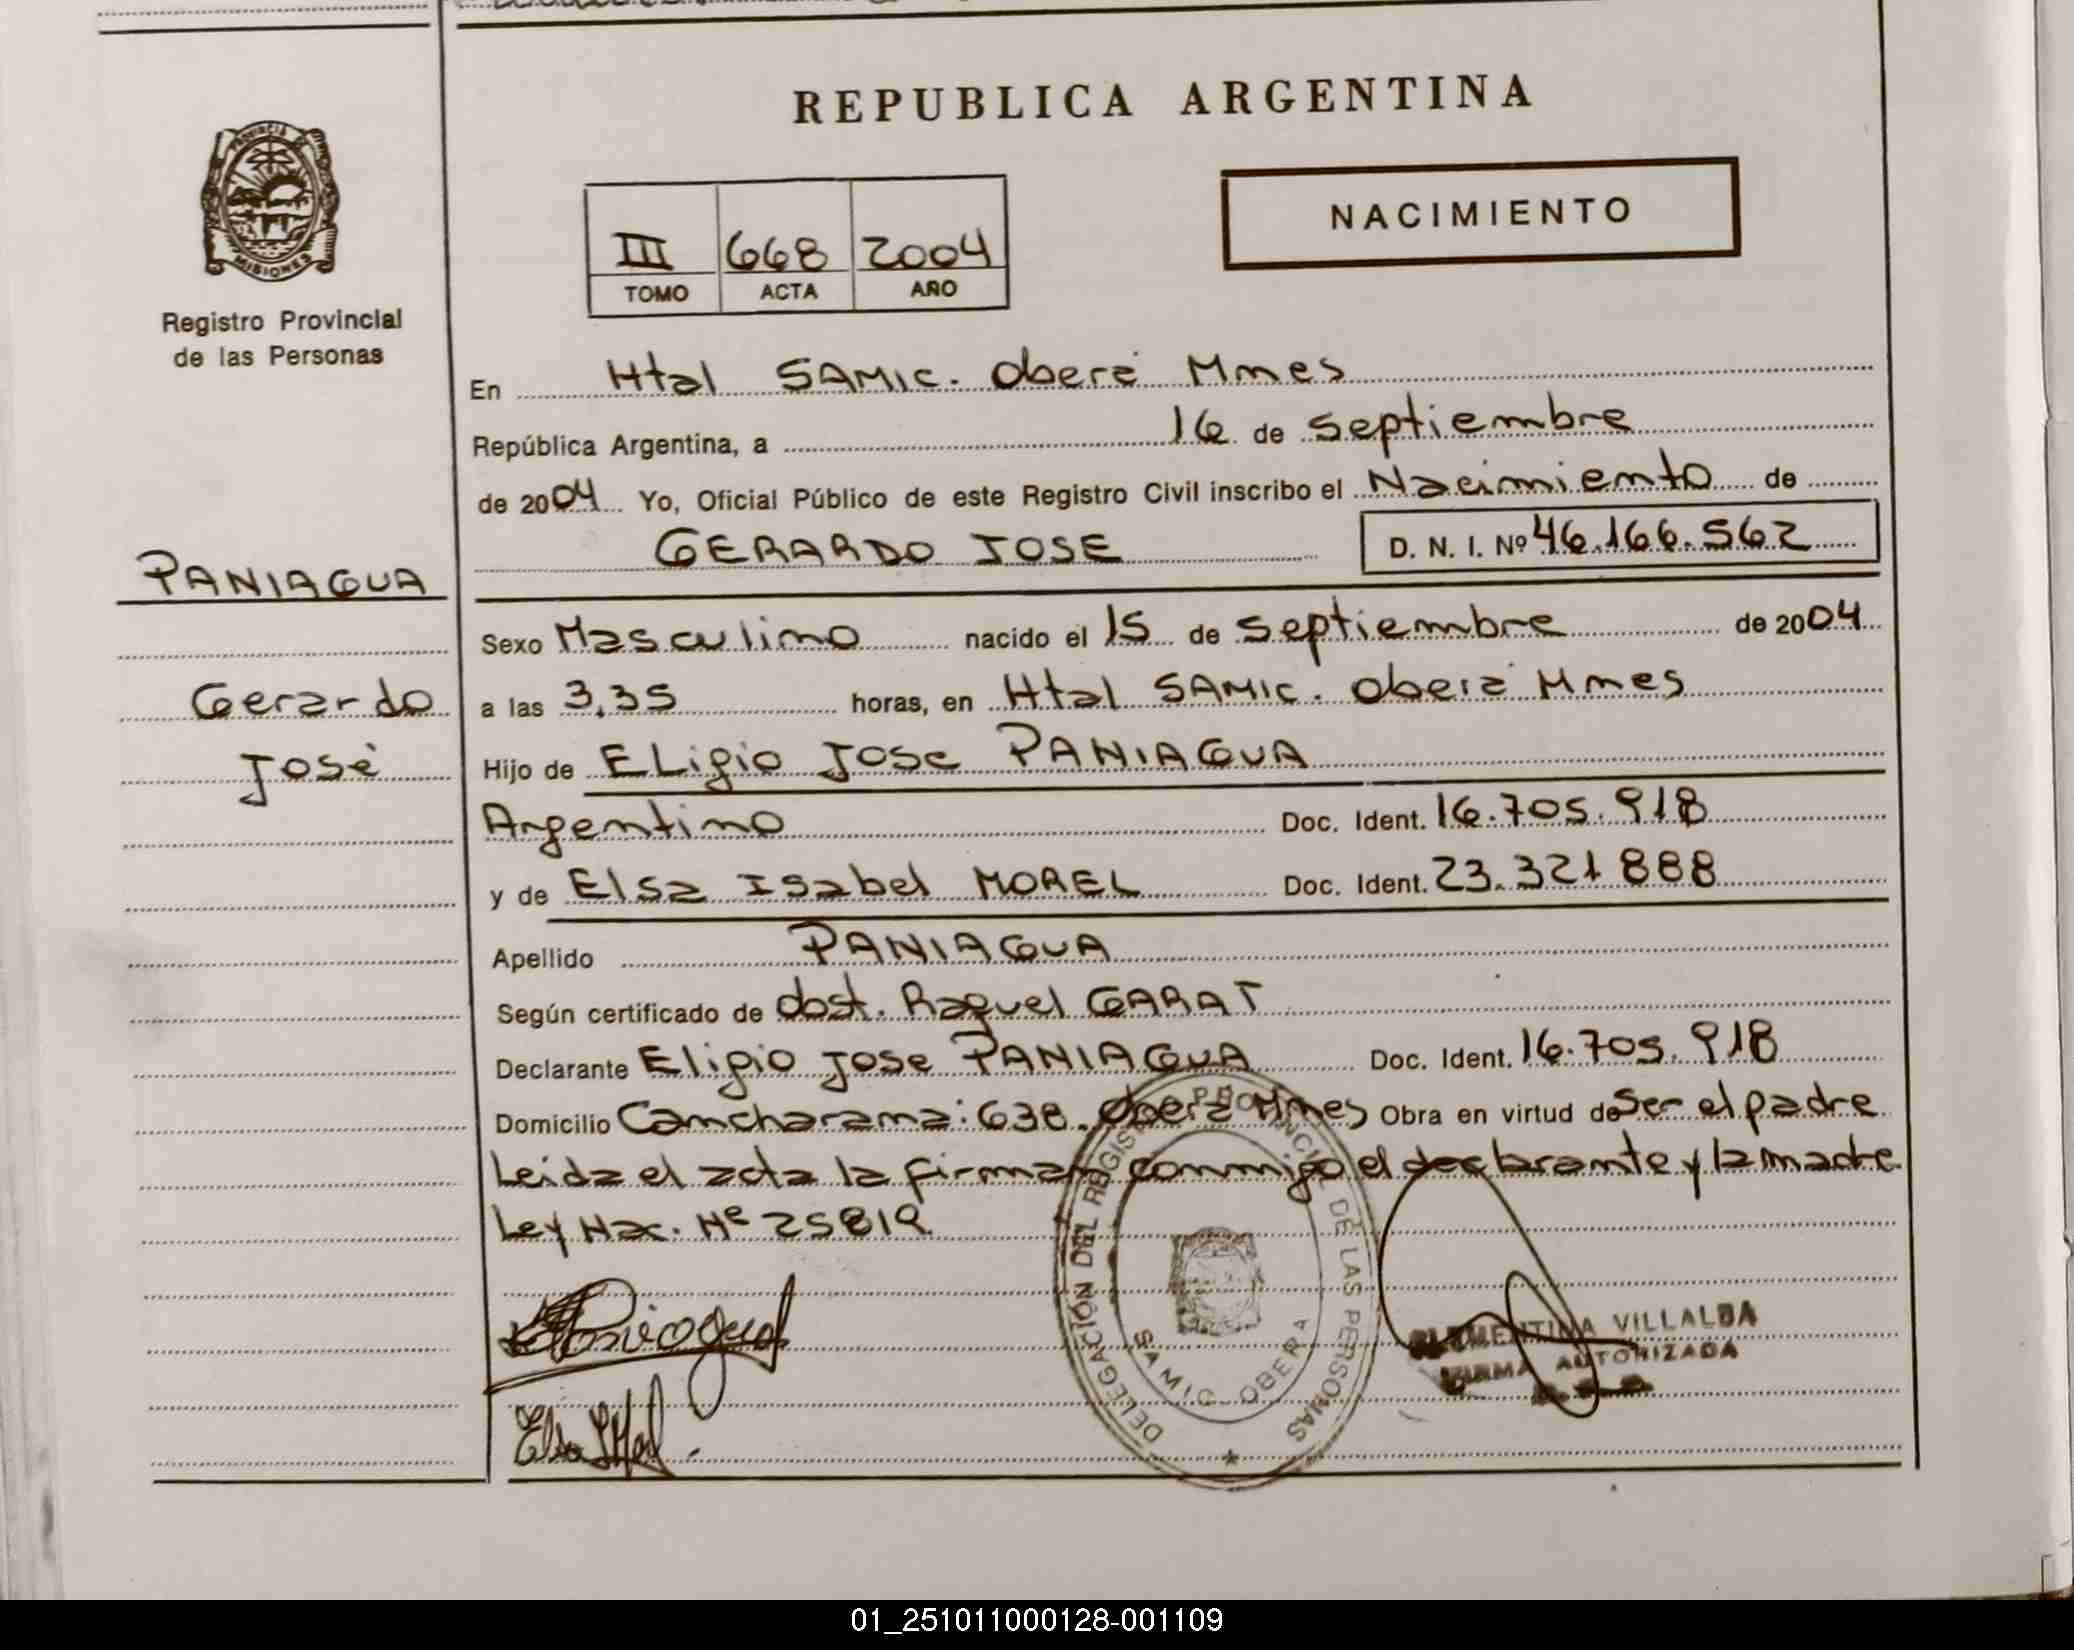 REPUBLICA ARGENTINA
PROVINCIA DE
MISIONES
Registro Provincial
de las Personas
NACIMIENTO
III 668 2004
TOMO ACTA AÑO
En Htal SAMIC. Oberá Mnes
República Argentina, a 16 de septiembre
de 2004 Yo, Oficial Público de este Registro Civil inscribo el Nacimiento de
GERARDO JOSE D. N. I. Nº 46.166.562
PANIAGUA
Gerardo
José
Sexo Masculino nacido el 15 de septiembre de 2004
a las 3,35 horas, en Htal SAMIC. Oberá Mnes
Hijo de ELigio Jose PANIAGUA
Argentino Doc. Ident. 16.705.918
y de Elsa Isabel MOREL Doc. Ident. 23.321 888
Apellido PANIAGUA
Según certificado de obst. Raquel GARAT
Declarante Eligio Jose PANIAGUA Doc. Ident. 16.705.918
Domicilio Cancharana: 638. Oberá Mnes Obra en virtud de ser el padre
Leida el acta la firman conmigo el declarante y la madre
Ley Nac. Nº 25819
DELEGACIÓN DEL REGISTRO PROVINCIAL DE LAS PERSONAS
SAMIC - OBERA
CLEMENTINA VILLALBA
FIRMA AUTORIZADA
01_251011000128-001109